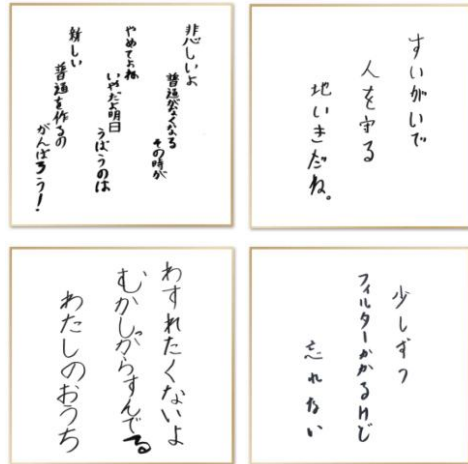 悲しいよ
普通がなくなる
その時が
やめてよね
いやだよ明日
うばうのは
新しい
普通を作るの
がんばろう!
すいがいで
人を守る
地いきだね。
わすれたくないよ
むかしがらすんでる
わたしのおうち
少しずつ
フィルターかかるけど
忘れない